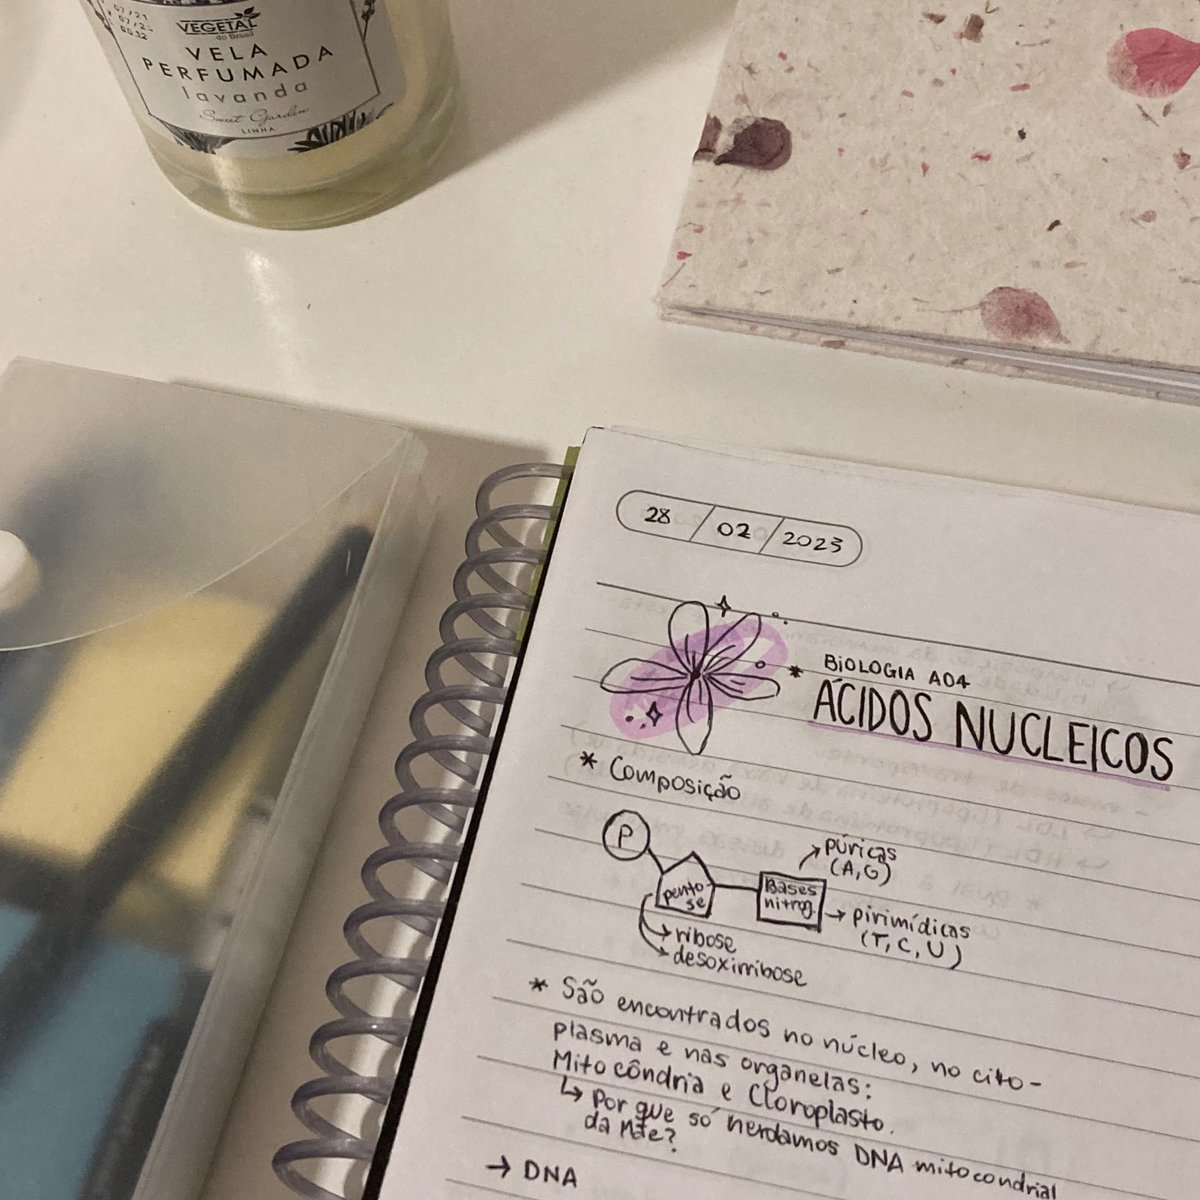 VEGETAL
do Brasil
VELA
PERFUMADA
lavanda
Sweet Garden
LINHA
28 / 02 / 2023
* BIOLOGIA A04
ÁCIDOS NUCLEICOS
* Composição
P
pento
se
Bases
nitrog.
púricas
(A,G)
→ pirimídicas
(T, C, U)
→ ribose
→ desoxirribose
* São encontrados no núcleo, no cito-
plasma e nas organelas:
Mitocôndria e Cloroplasto.
↳ Por que só herdamos DNA mitocondrial
da mãe?
→ DNA